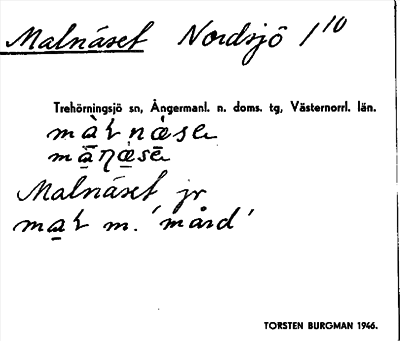 Malnäset Nordsjö 1/10
Trehörningsjö sn, Ångermanl. n. doms. tg, Västernorrl. län.
Malnäset jr
m. 'mård'
TORSTEN BURGMAN 1946.